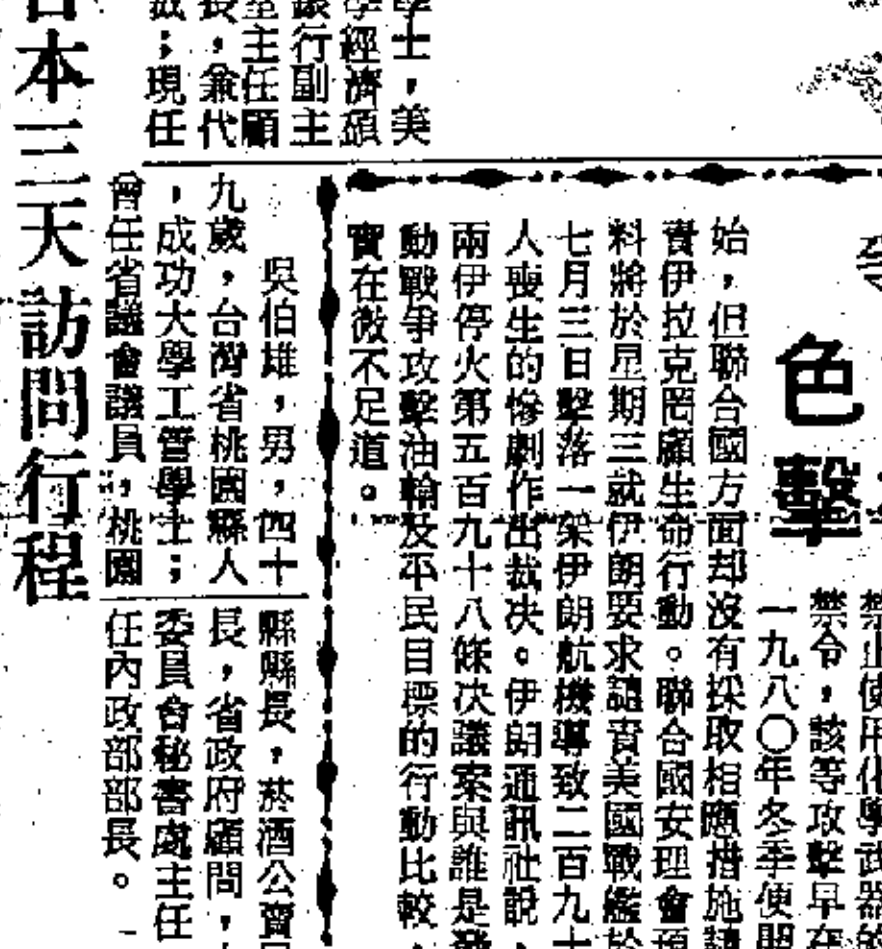 學士，美
經濟碩
銀行副主
室主任顧
長，兼代
裁；現任
色擊
禁止使用化學武器的
禁令，該等攻擊早在
一九八〇年冬季便開
始，但聯合國方面却沒有採取相應措施譴
責伊拉克罔顧生命行動。聯合國安理會預
料將於星期三就伊朗要求譴責美國戰艦於
七月三日擊落一架伊朗航機導致二百九十
人喪生的慘劇作出裁决。伊朗通訊社說，
兩伊停火第五百九十八條决議案與誰是發
動戰爭攻擊油輪及平民目標的行動比較，
實在微不足道。
吳伯雄，男，四十
九歲，台灣省桃園縣人
，成功大學工管學士；
曾任省議會議員，桃園
縣縣長，菸酒公賣局
長，省政府顧問，
委員會秘書處主任
任內政部部長。
日本三天訪問行程